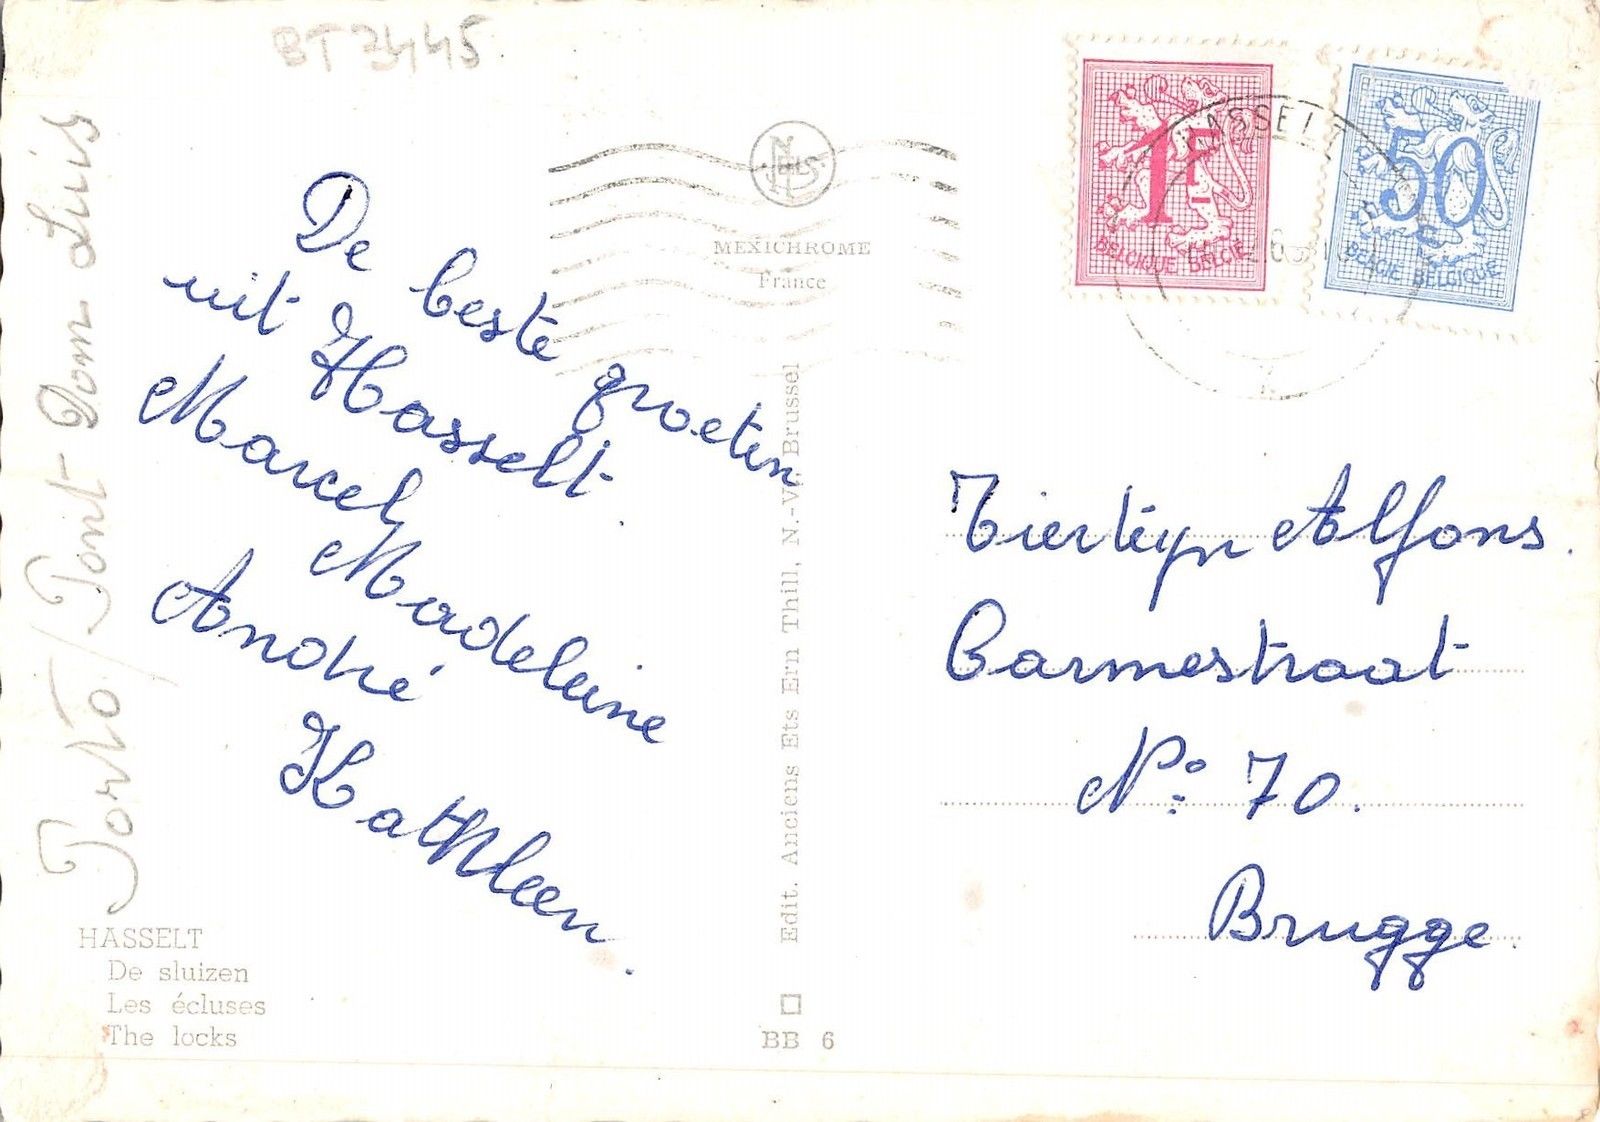 BT 3445
Porto / Pont Dom Luis
De beste groeten
uit Hasselt.
Marcel
Madeleine
André
Kathleen.
HASSELT
De sluizen
Les écluses
The locks
NELS
MEXICHROME
France
Edit. Anciens Ets Ern Thill, N.-V. Brussel
BB 6
1F
BELGIQUE BELGIË
50
BELGIË BELGIQUE
HASSELT
Alfons.
Carmestraat
No: 70.
Brugge.